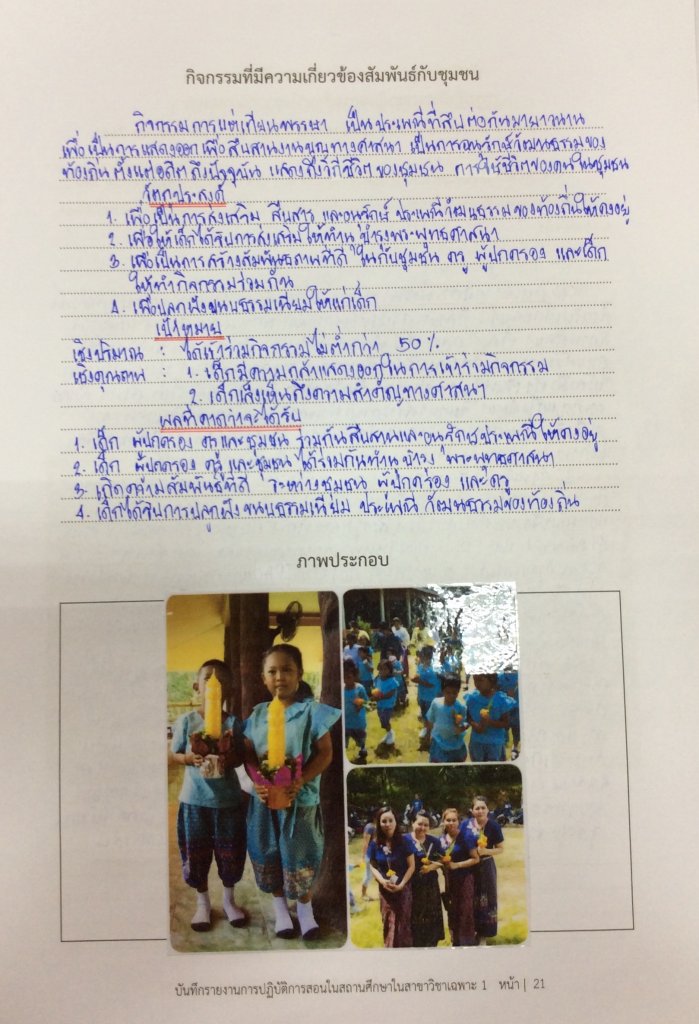 กิจกรรมที่มีความเกี่ยวข้องสัมพันธ์กับชุมชน
กิจกรรมการแห่เทียนพรรษา เป็นประเพณีที่สืบต่อกันมายาวนาน
เพื่อเป็นการแสดงออก เพื่อสืบสานงานบุญทางศาสนา เป็นการอนุรักษ์วัฒนธรรมของ
ท้องถิ่น ตั้งแต่อดีต ถึงปัจจุบัน แสดงถึงวิถีชีวิตของชุมชน การใช้ชีวิตของคนในชุมชน
วัตถุประสงค์
1. เพื่อเป็นการส่งเสริม สืบสาน และอนุรักษ์ ประเพณีวัฒนธรรมของท้องถิ่นให้คงอยู่
2. เพื่อให้เด็กได้รับการส่งเสริมให้ทำนุ บำรุงพระพุทธศาสนา
3. เพื่อเป็นการสร้างสัมพันธภาพที่ดี ในกับชุมชน ครู ผู้ปกครอง และเด็ก
ให้ทำกิจกรรมร่วมกัน
4. เพื่อปลูกฝังขนบธรรมเนียมให้แก่เด็ก
เป้าหมาย
เชิงปริมาณ : ได้เข้าร่วมกิจกรรมไม่ต่ำกว่า 50 %
เชิงคุณภาพ : 1. เด็กมีความกล้าแสดงออกในการเข้าร่วมกิจกรรม
2. เด็กเล็งเห็นถึงความสำคัญทางศาสนา
ผลที่คาดว่าจะได้รับ
1. เด็ก ผู้ปกครอง ครูและชุมชน ร่วมกันสืบสานและอนุรักษ์ประเพณีให้คงอยู่
2. เด็ก ผู้ปกครอง ครู และชุมชน ได้ร่วมกันทำนุบำรุง พระพุทธศาสนา
3. เกิดความสัมพันธ์ที่ดี ระหว่างชุมชน ผู้ปกครอง และครู
4. เด็กได้รับการปลูกฝังขนบธรรมเนียม ประเพณี วัฒนธรรมของท้องถิ่น
ภาพประกอบ
บันทึกรายงานการปฏิบัติการสอนในสถานศึกษาในสาขาวิชาเฉพาะ 1 หน้า | 21